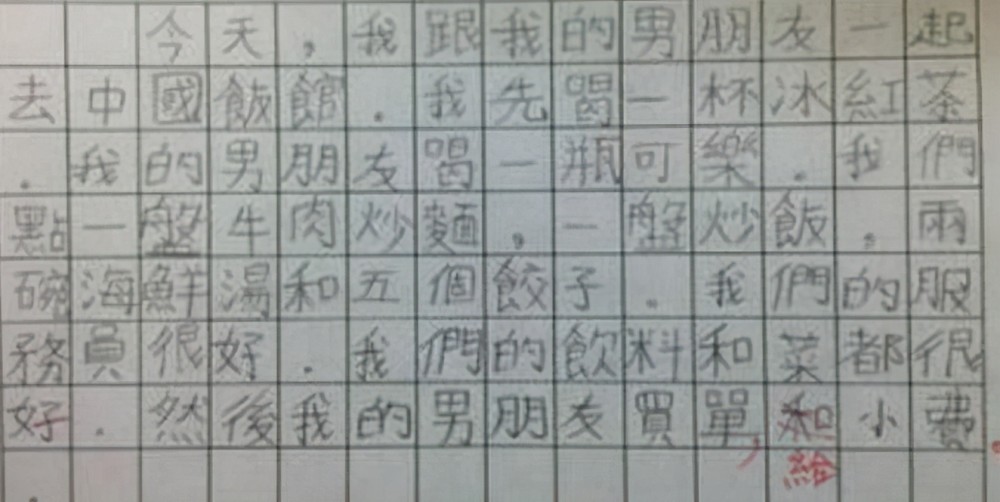 今天，我跟我的男朋友一起
去中國飯館．我先喝一杯冰紅茶
．我的男朋友喝一瓶可樂．我們
點一盤牛肉炒麵，一盤炒飯，兩
碗海鮮湯和五個餃子．我們的服
務員很好．我們的飲料和菜都很
好．然後我的男朋友買單，和小費
給
．